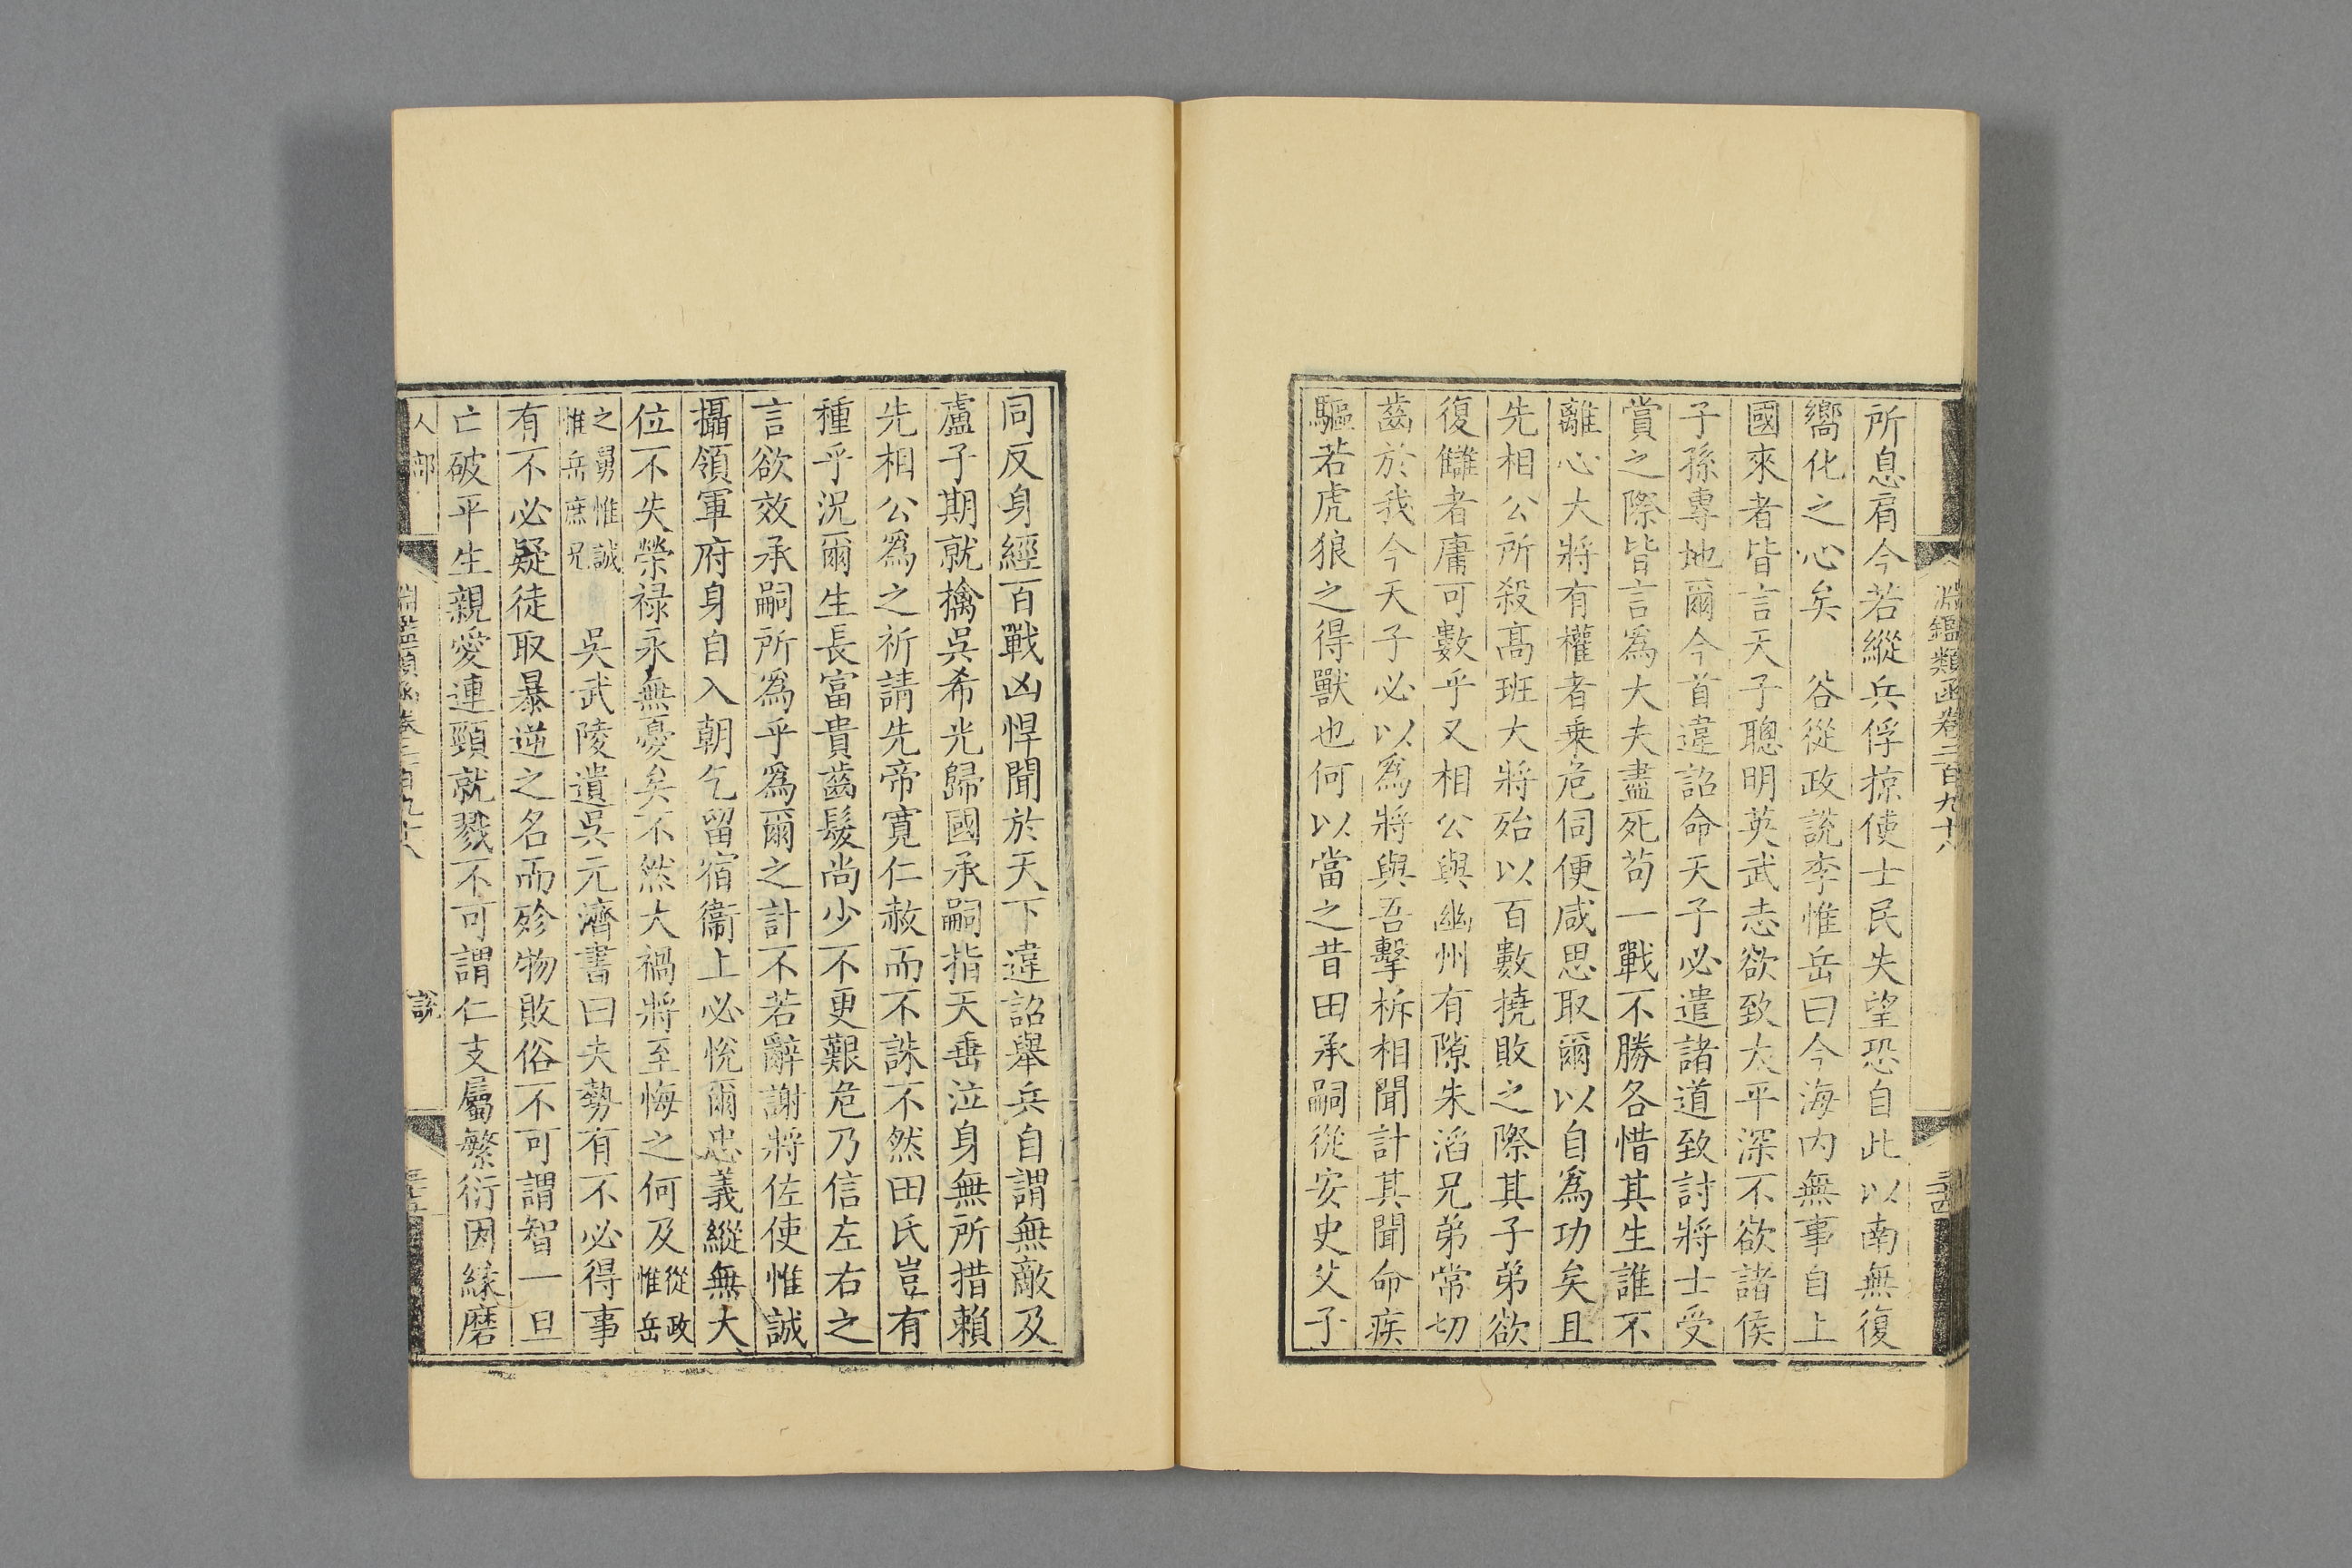 淵鑑類函卷二百九十八
三十四
所息肩今若縱兵俘掠使士民失望恐自此以南無復
嚮化之心矣 谷從政說李惟岳曰今海內無事自上
國來者皆言天子聰明英武志欲致太平深不欲諸侯
子孫專地爾今首違詔命天子必遣諸道致討將士受
賞之際皆言爲大夫盡死苟一戰不勝各惜其生誰不
離心大將有權者乗危伺便咸思取爾以自爲功矣且
先相公所殺高班大將殆以百數撓敗之際其子弟欲
復讎者庸可數乎又相公與幽州有隙朱滔兄弟常切
齒於我今天子必以爲將與吾擊柝相聞計其聞命疾
驅若虎狼之得獸也何以當之昔田承嗣從安史父子
同反身經百戰凶悍聞於天下違詔舉兵自謂無敵及
盧子期就擒吳希光歸國承嗣指天垂泣身無所措賴
先相公爲之祈請先帝寛仁赦而不誅不然田氏豈有
種乎況爾生長富貴齒髮尚少不更艱危乃信左右之
言欲效承嗣所爲乎爲爾之計不若辭謝將佐使惟誠
攝領軍府身自入朝乞留宿衞上必悅爾忠義縱無大
位不失榮禄永無憂矣不然大禍將至悔之何及從政惟岳
之舅惟誠惟岳庶兄 吳武陵遺吳元濟書曰夫勢有不必得事
有不必疑徒取暴逆之名而殄物敗俗不可謂智一旦
亡破平生親愛連頸就戮不可謂仁支屬繁衍因緣磨
人部
淵鑑類函卷二百九十八
說
三十五